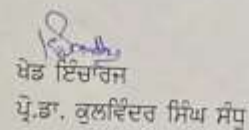 ਖੇਡ ਇੰਚਾਰਜ
ਪ੍ਰੋ.ਡਾ. ਕੁਲਵਿੰਦਰ ਸਿੰਘ ਸੰਧੂ